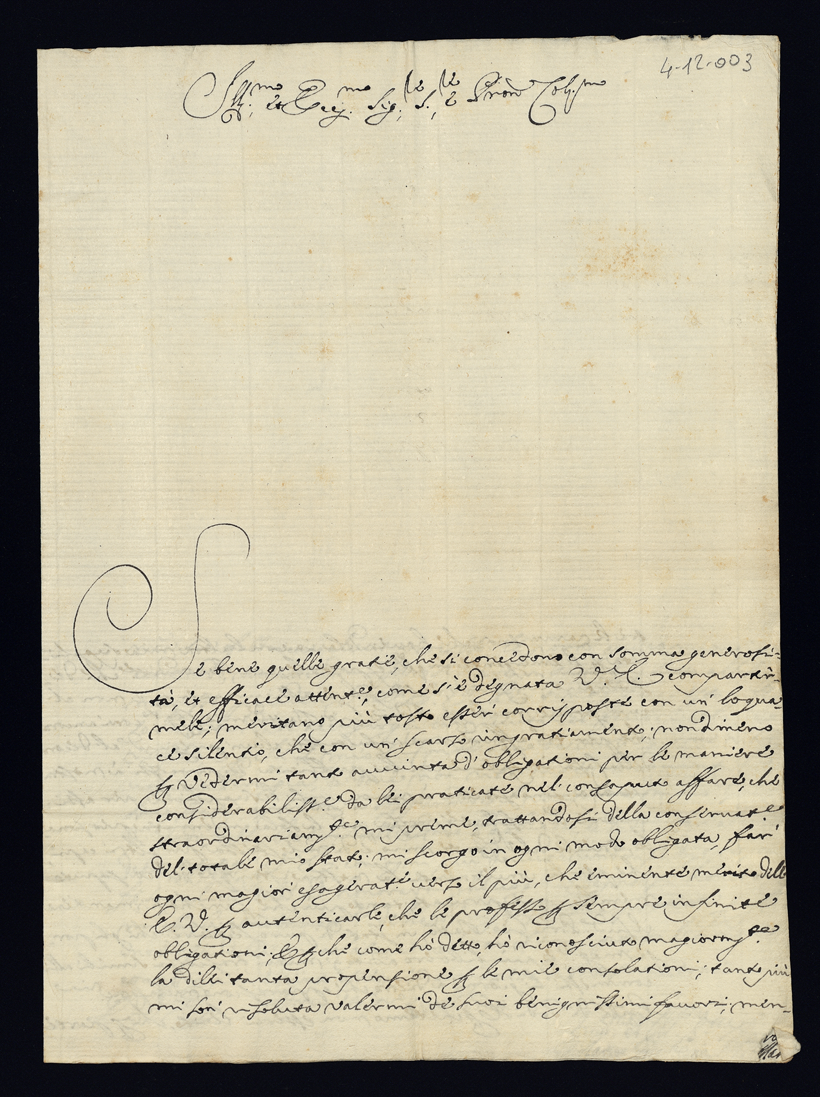 4-12-003
Ill.mo et Ecc.mo Sig.re S.re e Pron Col.mo
Se bene quelle gratie, che si concedono con somma generosi-
tà, et efficace attent.e, come s'è degnata V.E. compartir-
mele; meritano più tosto esser corrisposte con un loqua-
ce silentio, che con un scarso ingratiamento; nondimeno
p vedermi tanto auuinta d'obligationi per le maniere
considerabiliss.e da lei praticate nel consaputo affare, che
straordinariam.te mi preme, trattandosi della conseruat.e
del total mio stato; mi scorgo in ogni modo obligata, far'
ogni magior esagerat.e verso il più, che eminente merito dell'
E.V. p autenticarle, che le professo p sempre infinite
obligationi; & p che come hò detto, hò riconosciuto magiorm.te
la di lei tanta propensione p le mie consolationi; tanto più
mi son' risoluta valermi de suoi benignissimi fauori; men-